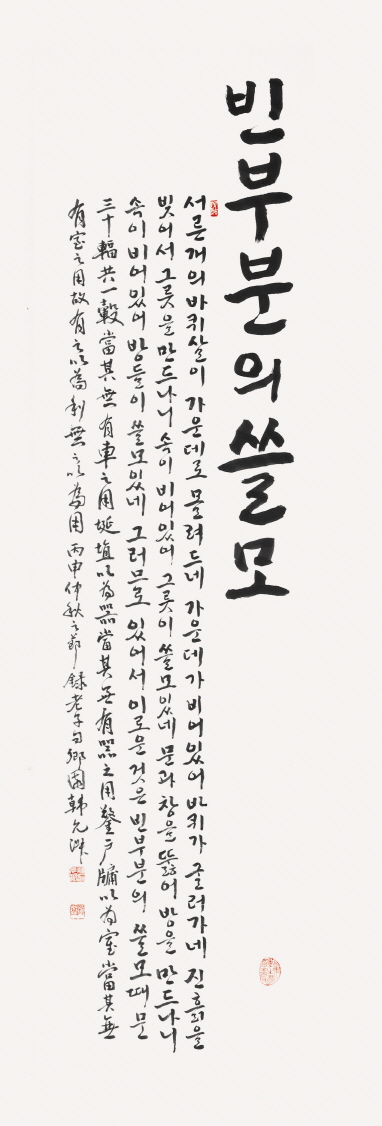 빈부분의 쓸모
서른개의 바퀴살이 가운데로 몰려드네 가운데가 비어있어 바퀴가 굴러가네 진흙을
빚어서 그릇을 만드나니 속이 비어있어 그릇이 쓸모있네 문과 창을 뚫어 방을 만드나니
속이 비어있어 방들이 쓸모있네 그러므로 있어서 이로운것은 빈부분의 쓸모때문
三十輻共一轂當其無有車之用埏埴以為器當其無有器之用鑿戶牖以為室當其無
有室之用故有之以為利無之以為用 丙申仲秋之節 錄老子句 鄕園 韓允